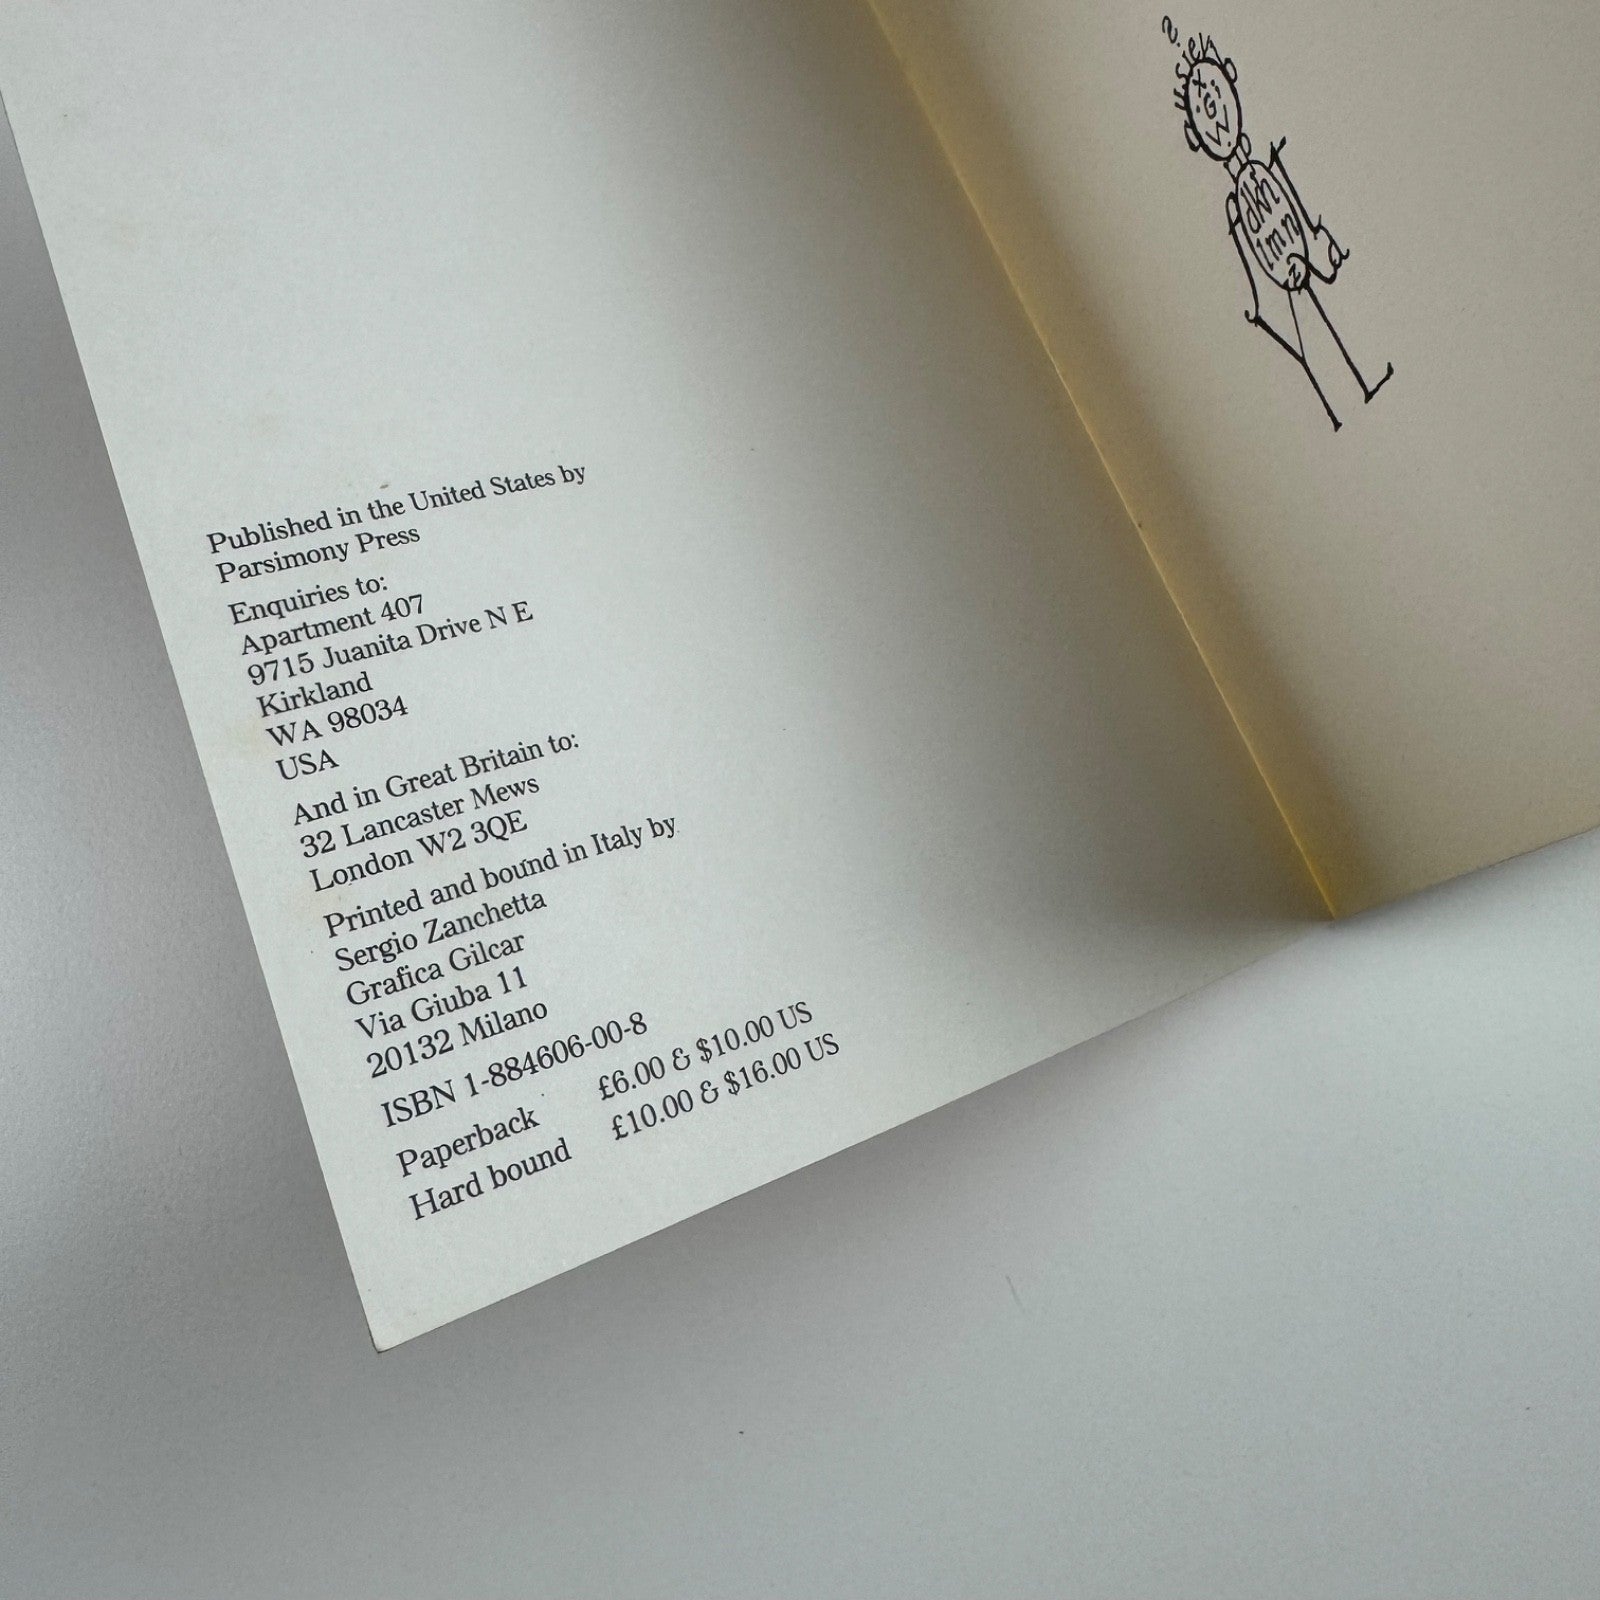 Published in the United States by
Parsimony Press
Enquiries to:
Apartment 407
9715 Juanita Drive N E
Kirkland
WA 98034
USA
And in Great Britain to:
32 Lancaster Mews
London W2 3QE
Printed and bound in Italy by
Sergio Zanchetta
Grafica Gilcar
Via Giuba 11
20132 Milano
ISBN 1-884606-00-8
Paperback £6.00 & $10.00 US
Hard bound £10.00 & $16.00 US